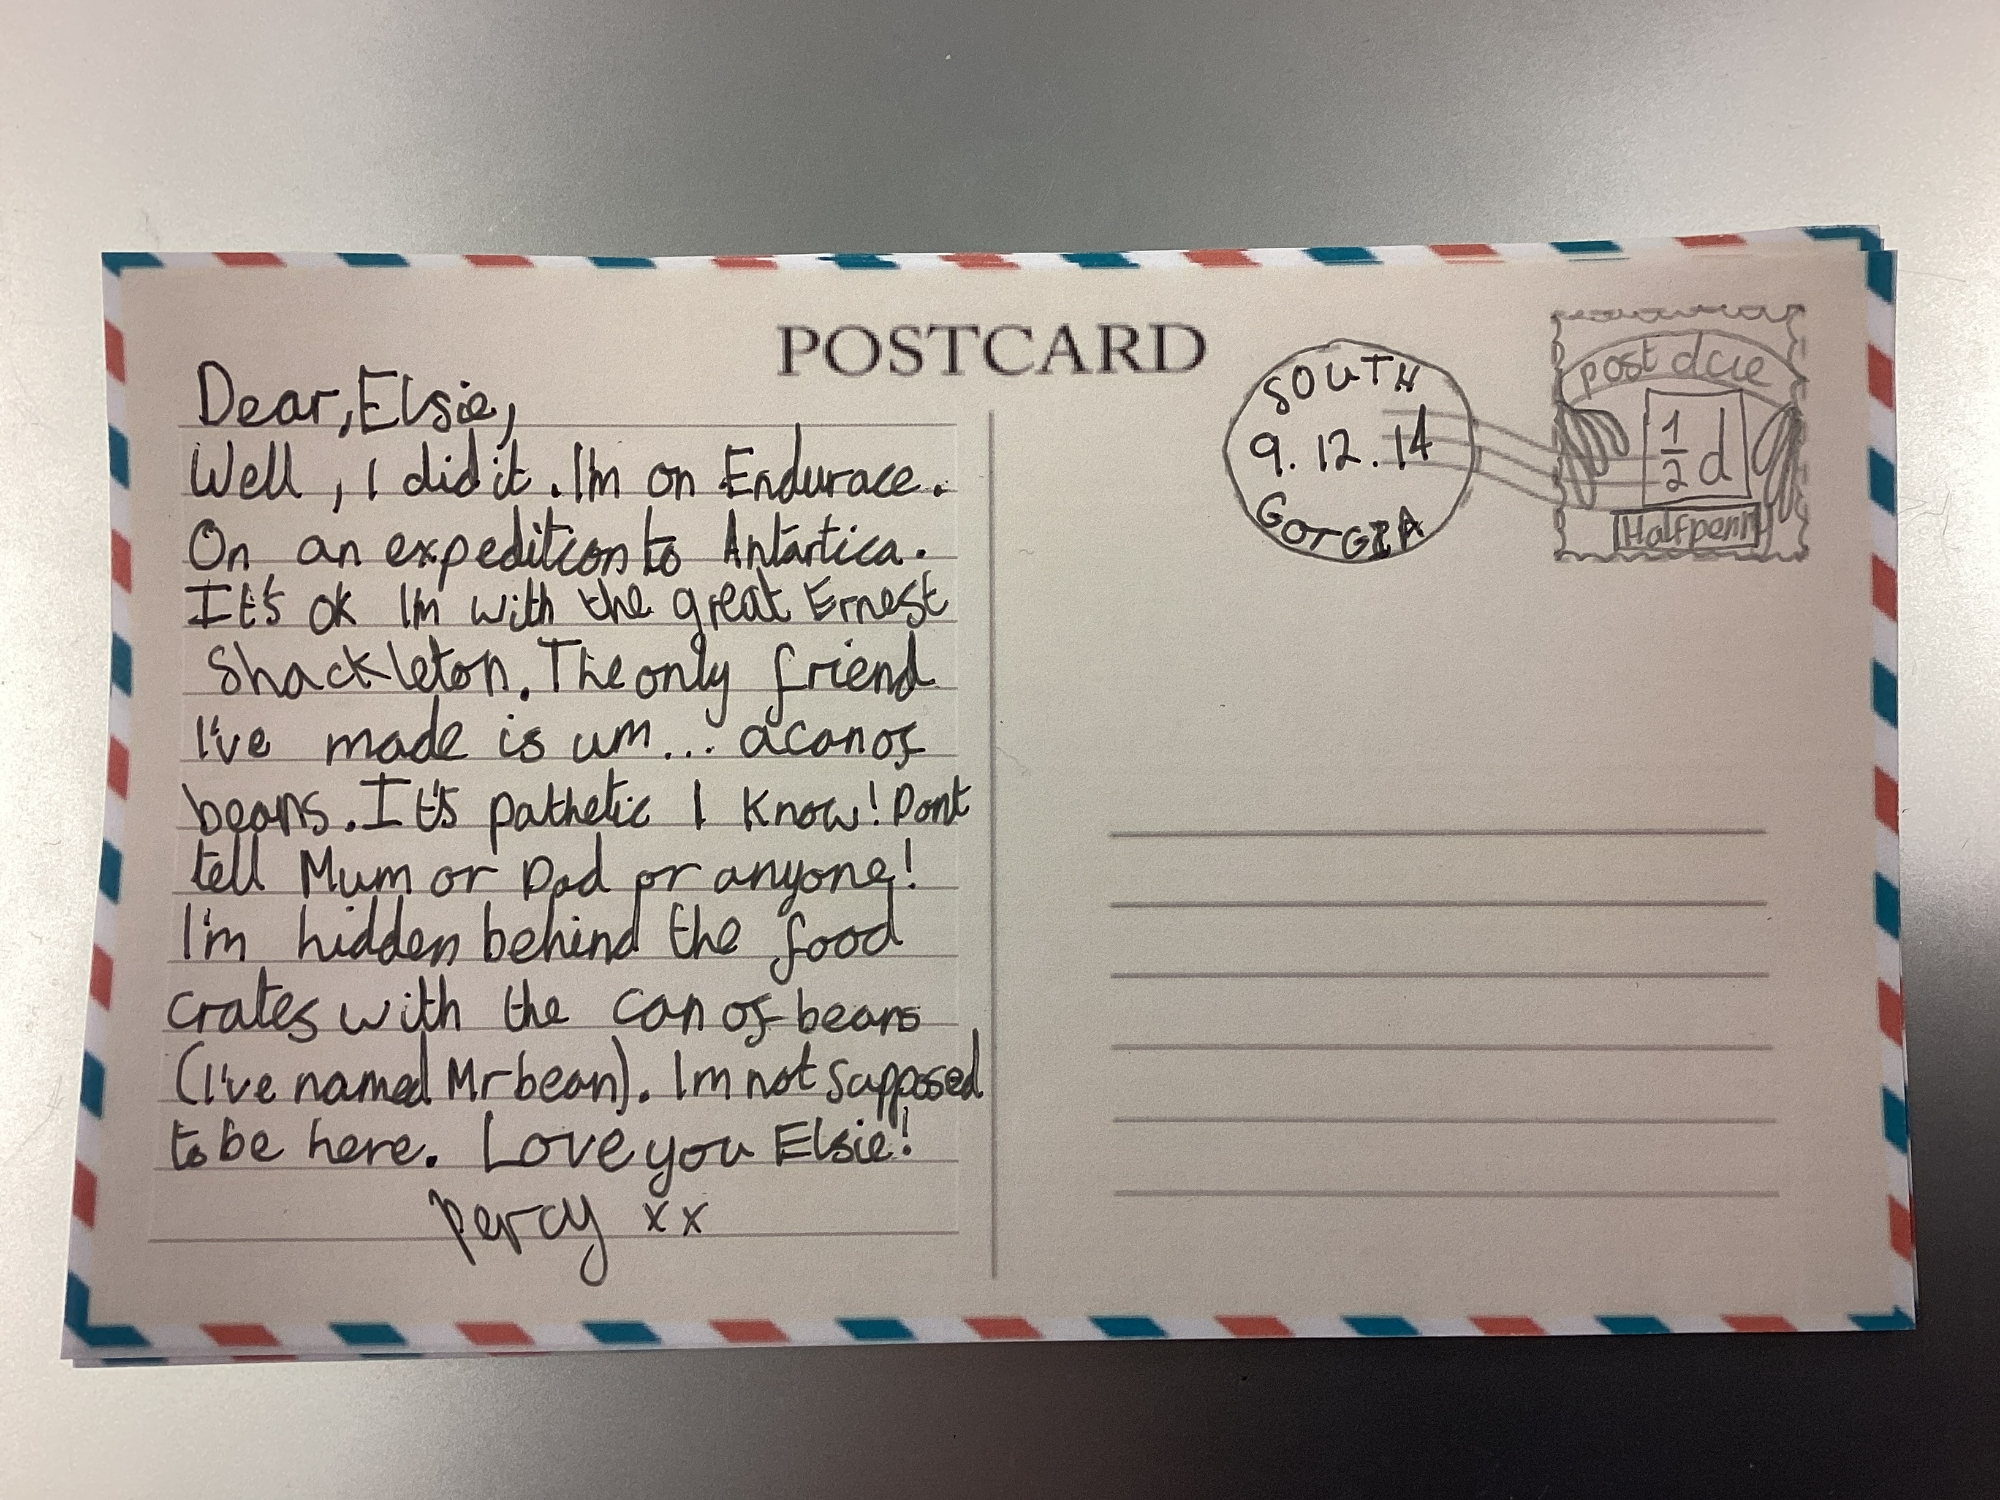 POSTCARD
Dear, Elsie,
Well, I did it. I'm on Endurace.
On an expedition to Antartica.
It's ok I'm with the great Ernest
Shackleton. The only friend
I've made is um... a can of
beans. It's pathetic I know! Dont
tell Mum or Dad or anyone!
I'm hidden behind the food
crates with the can of beans
(I've named Mr bean). I'm not supposed
to be here. Love you Elsie!
Percy xx
SOUTH
9.12.14
GOTGIA
post due
1/2 d
Halfpenny